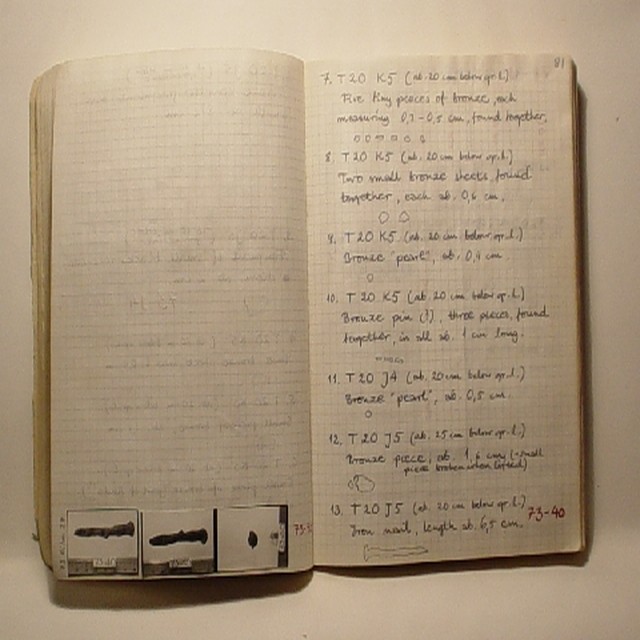 81
7. T20 K5 (ab. 20 cm below gr. l.)
Five tiny pieces of bronze, each
measuring 0,3-0,5 cm, found together.
8. T20 K5 (ab. 20 cm below gr. l.)
Two small bronze sheets, found
together, each ab. 0,6 cm.
9. T20 K5 (ab. 20 cm below gr. l.)
Bronze "pearl", ab. 0,4 cm.
10. T20 K5 (ab. 20 cm below gr. l.)
Bronze pin (?), three pieces, found
together, in all ab. 1 cm long.
11. T20 J4 (ab. 20 cm below gr. l.)
Bronze "pearl", ab. 0,5 cm.
12. T20 J5 (ab. 25 cm below gr. l.)
Bronze piece, ab. 1,6 cm (small
piece broken when lifted)
13. T20 J5 (ab. 20 cm below gr. l.)
73-40
Iron nail, length ab. 6,5 cm.